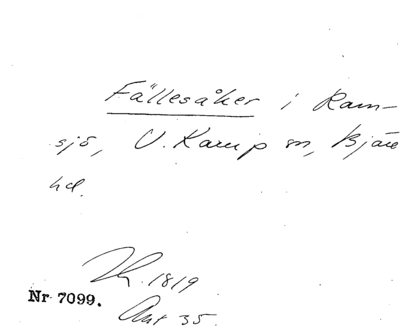 Fällesåker i Ram-
sjö, V. Karup sn, Bjäre
hd.
1819
Nr 7099.
Ant 35.